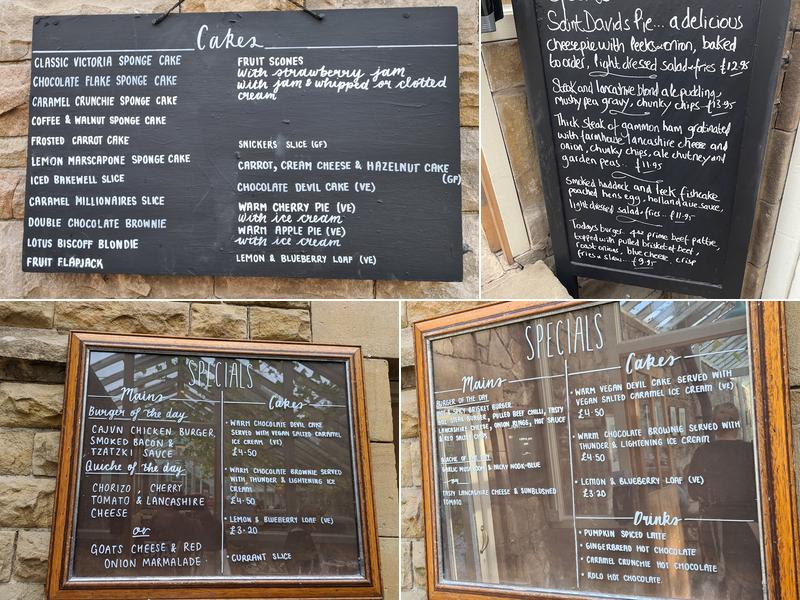 Cakes
CLASSIC VICTORIA SPONGE CAKE
CHOCOLATE FLAKE SPONGE CAKE
CARAMEL CRUNCHIE SPONGE CAKE
COFFEE & WALNUT SPONGE CAKE
FROSTED CARROT CAKE
LEMON MARSCAPONE SPONGE CAKE
ICED BAKEWELL SLICE
CARAMEL MILLIONAIRES SLICE
DOUBLE CHOCOLATE BROWNIE
LOTUS BISCOFF BLONDIE
FRUIT FLAPJACK
FRUIT SCONES
with strawberry jam
with jam & whipped or clotted
cream
SNICKERS SLICE (GF)
CARROT, CREAM CHEESE & HAZELNUT CAKE
(GF)
CHOCOLATE DEVIL CAKE (VE)
WARM CHERRY PIE (VE)
with ice cream
WARM APPLE PIE (VE)
with ice cream
LEMON & BLUEBERRY LOAF (VE)
Saint Davids Pie... a delicious
cheese pie with leeks & onion, baked
to order, light dressed salad & fries £12.95
Steak and lancashire blond ale pudding,
mushy pea gravy, chunky chips £13.95
Thick steak of gammon ham gratinated
with farmhouse lancashire cheese and
onion, chunky chips, ale chutney and
garden peas... £11.95
Smoked haddock and leek fishcake
poached hens egg, hollandause sauce,
light dressed salad & fries... £11.95
Todays burger. 4oz prime beef pattie,
topped with pulled brisket of beef,
roast onions, blue cheese, crisp
fries & slaw... £9.95
SPECIALS
Mains
Burger of the day
CAJUN CHICKEN BURGER,
SMOKED BACON &
TZATZKI SAUCE
Quiche of the day
CHORIZO, CHERRY
TOMATO & LANCASHIRE
CHEESE
or
GOATS CHEESE & RED
ONION MARMALADE
Cakes
• WARM CHOCOLATE DEVIL CAKE
SERVED WITH VEGAN SALTED CARAMEL
ICE CREAM (VE)
£4.50
• WARM CHOCOLATE BROWNIE SERVED
WITH THUNDER & LIGHTENING ICE
CREAM
£4.50
• LEMON & BLUEBERRY LOAF (VE)
£3.20
• CURRANT SLICE
SPECIALS
Mains
BURGER OF THE DAY
SPICY BRISKET BURGER
BURGER, PULLED BEEF CHILLI, TASTY
LANCASHIRE CHEESE, ONION RINGS, HOT SAUCE
& RED
QUICHE OF THE DAY
GARLIC MUSHROOM &
or
TASTY LANCASHIRE CHEESE & SUNBLUSHED
TOMATO
Cakes
• WARM VEGAN DEVIL CAKE SERVED WITH
VEGAN SALTED CARAMEL ICE CREAM (VE)
£4.50
• WARM CHOCOLATE BROWNIE SERVED WITH
THUNDER & LIGHTENING ICE CREAM
£4.50
• LEMON & BLUEBERRY LOAF (VE)
£3.20
Drinks
• PUMPKIN SPICED LATTE
• GINGERBREAD HOT CHOCOLATE
• CARAMEL CRUNCHIE HOT CHOCOLATE
• ROLO HOT CHOCOLATE